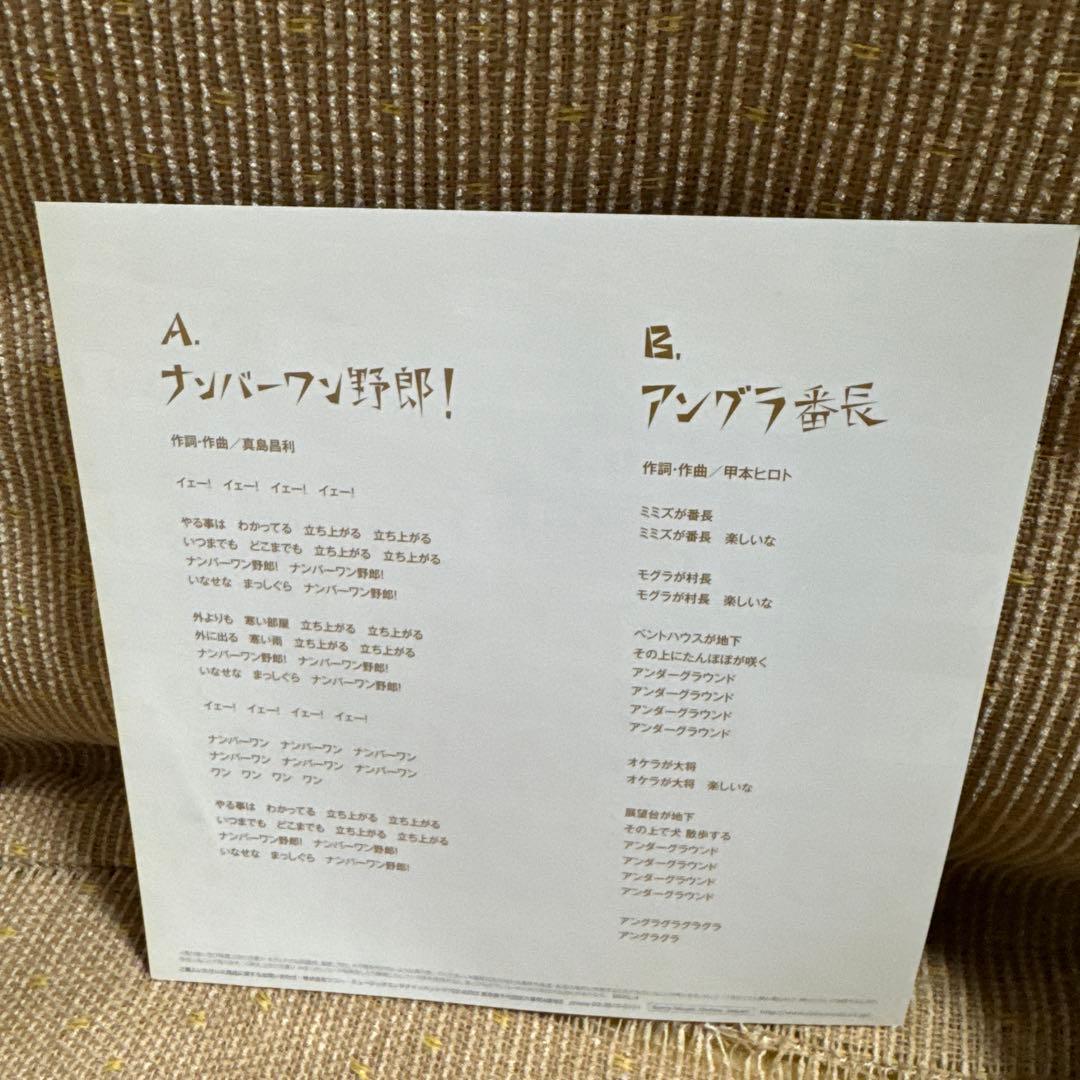 A.
ナンバーワン野郎!
作詞・作曲／真島昌利
イェー! イェー! イェー! イェー!
やる事は わかってる 立ち上がる 立ち上がる
いつまでも どこまでも 立ち上がる 立ち上がる
ナンバーワン野郎! ナンバーワン野郎!
いなせな まっしぐら ナンバーワン野郎!
外よりも 寒い部屋 立ち上がる 立ち上がる
外に出る 寒い雨 立ち上がる 立ち上がる
ナンバーワン野郎! ナンバーワン野郎!
いなせな まっしぐら ナンバーワン野郎!
イェー! イェー! イェー! イェー!
ナンバーワン ナンバーワン ナンバーワン
ナンバーワン ナンバーワン ナンバーワン
ワン ワン ワン ワン
やる事は わかってる 立ち上がる 立ち上がる
いつまでも どこまでも 立ち上がる 立ち上がる
ナンバーワン野郎! ナンバーワン野郎!
いなせな まっしぐら ナンバーワン野郎!
B.
アングラ番長
作詞・作曲／甲本ヒロト
ミミズが番長
ミミズが番長 楽しいな
モグラが村長
モグラが村長 楽しいな
ペントハウスが地下
その上にたんぽぽが咲く
アンダーグラウンド
アンダーグラウンド
アンダーグラウンド
アンダーグラウンド
オケラが大将
オケラが大将 楽しいな
展望台が地下
その上で犬 散歩する
アンダーグラウンド
アンダーグラウンド
アンダーグラウンド
アンダーグラウンド
アングラグラグラグラ
アングラグラ